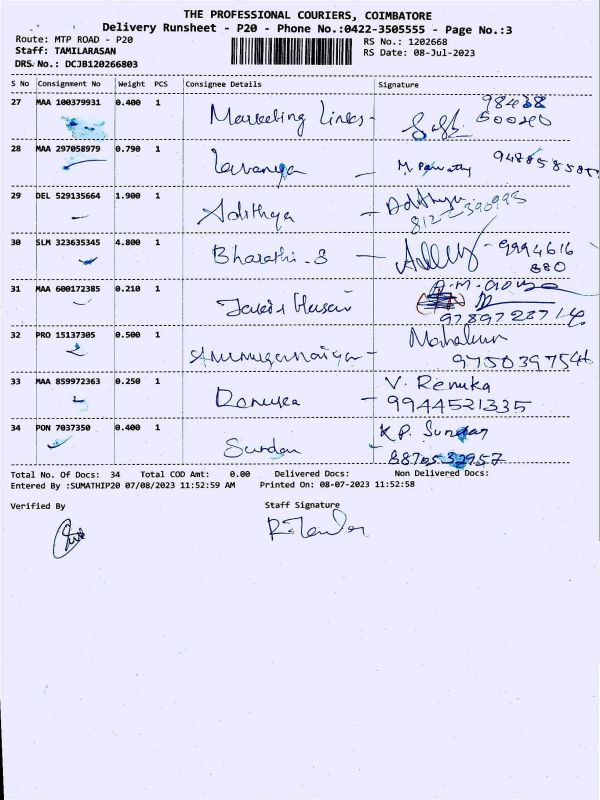 THE PROFESSIONAL COURIERS, COIMBATORE
Delivery Runsheet - P20 - Phone No.:0422-3505555 - Page No.:3
Route: MTP ROAD - P20 RS No.: 1202668
Staff: TAMILARASAN RS Date: 08-Jul-2023
DRS No.: DCJB120266803
S No Consignment No Weight PCS Consignee Details Signature
27 MAA 100379931 0.400 1 Marketing Links - 98438
28 MAA 297058979 0.790 1 Lavanya - M. Parvathy
29 DEL 529135664 1.900 1 Adithya -
8122390993
30 SLM 323635345 4.800 1 Bharathi.S - 9994616
880
31 MAA 600172385 0.210 1
9789723714
32 PRO 15137305 0.500 1
9750397546
33 MAA 859972363 0.250 1 Renuka - V. Renuka
9944521335
34 PON 7037350 0.400 1 Sundar - K.P. Sundar
8870532957
Total No. Of Docs: 34 Total COD Amt: 0.00 Delivered Docs: Non Delivered Docs:
Entered By :SUMATHIP20 07/08/2023 11:52:59 AM Printed On: 08-07-2023 11:52:58
Verified By Staff Signature